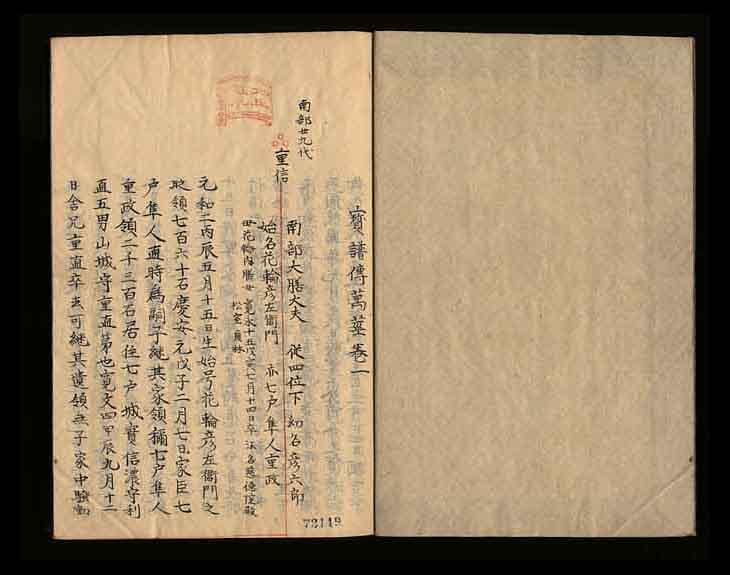 寳譜傳萬莖巻一
南部廿九代
重信
南部大膳大夫 従四位下 初名彦六郎
始名花輪彦左衞門 亦七戸隼人重政
母花輪内膳女 寛永十五戊寅七月十四日卒 法名慈徳院殿
松室貞林
元和二丙辰五月十五日生始号花輪彦左衞門之
取領七百六十石慶安元戊子二月七日家臣七
戸隼人直時爲嗣子継其家領稱七戸隼人
重政領二千三百石居住七戸城實信濃守利
直五男山城守重直弟也寛文四甲辰九月十二
日舎兄重直卒去可継其遺領無子家中騒動
73149